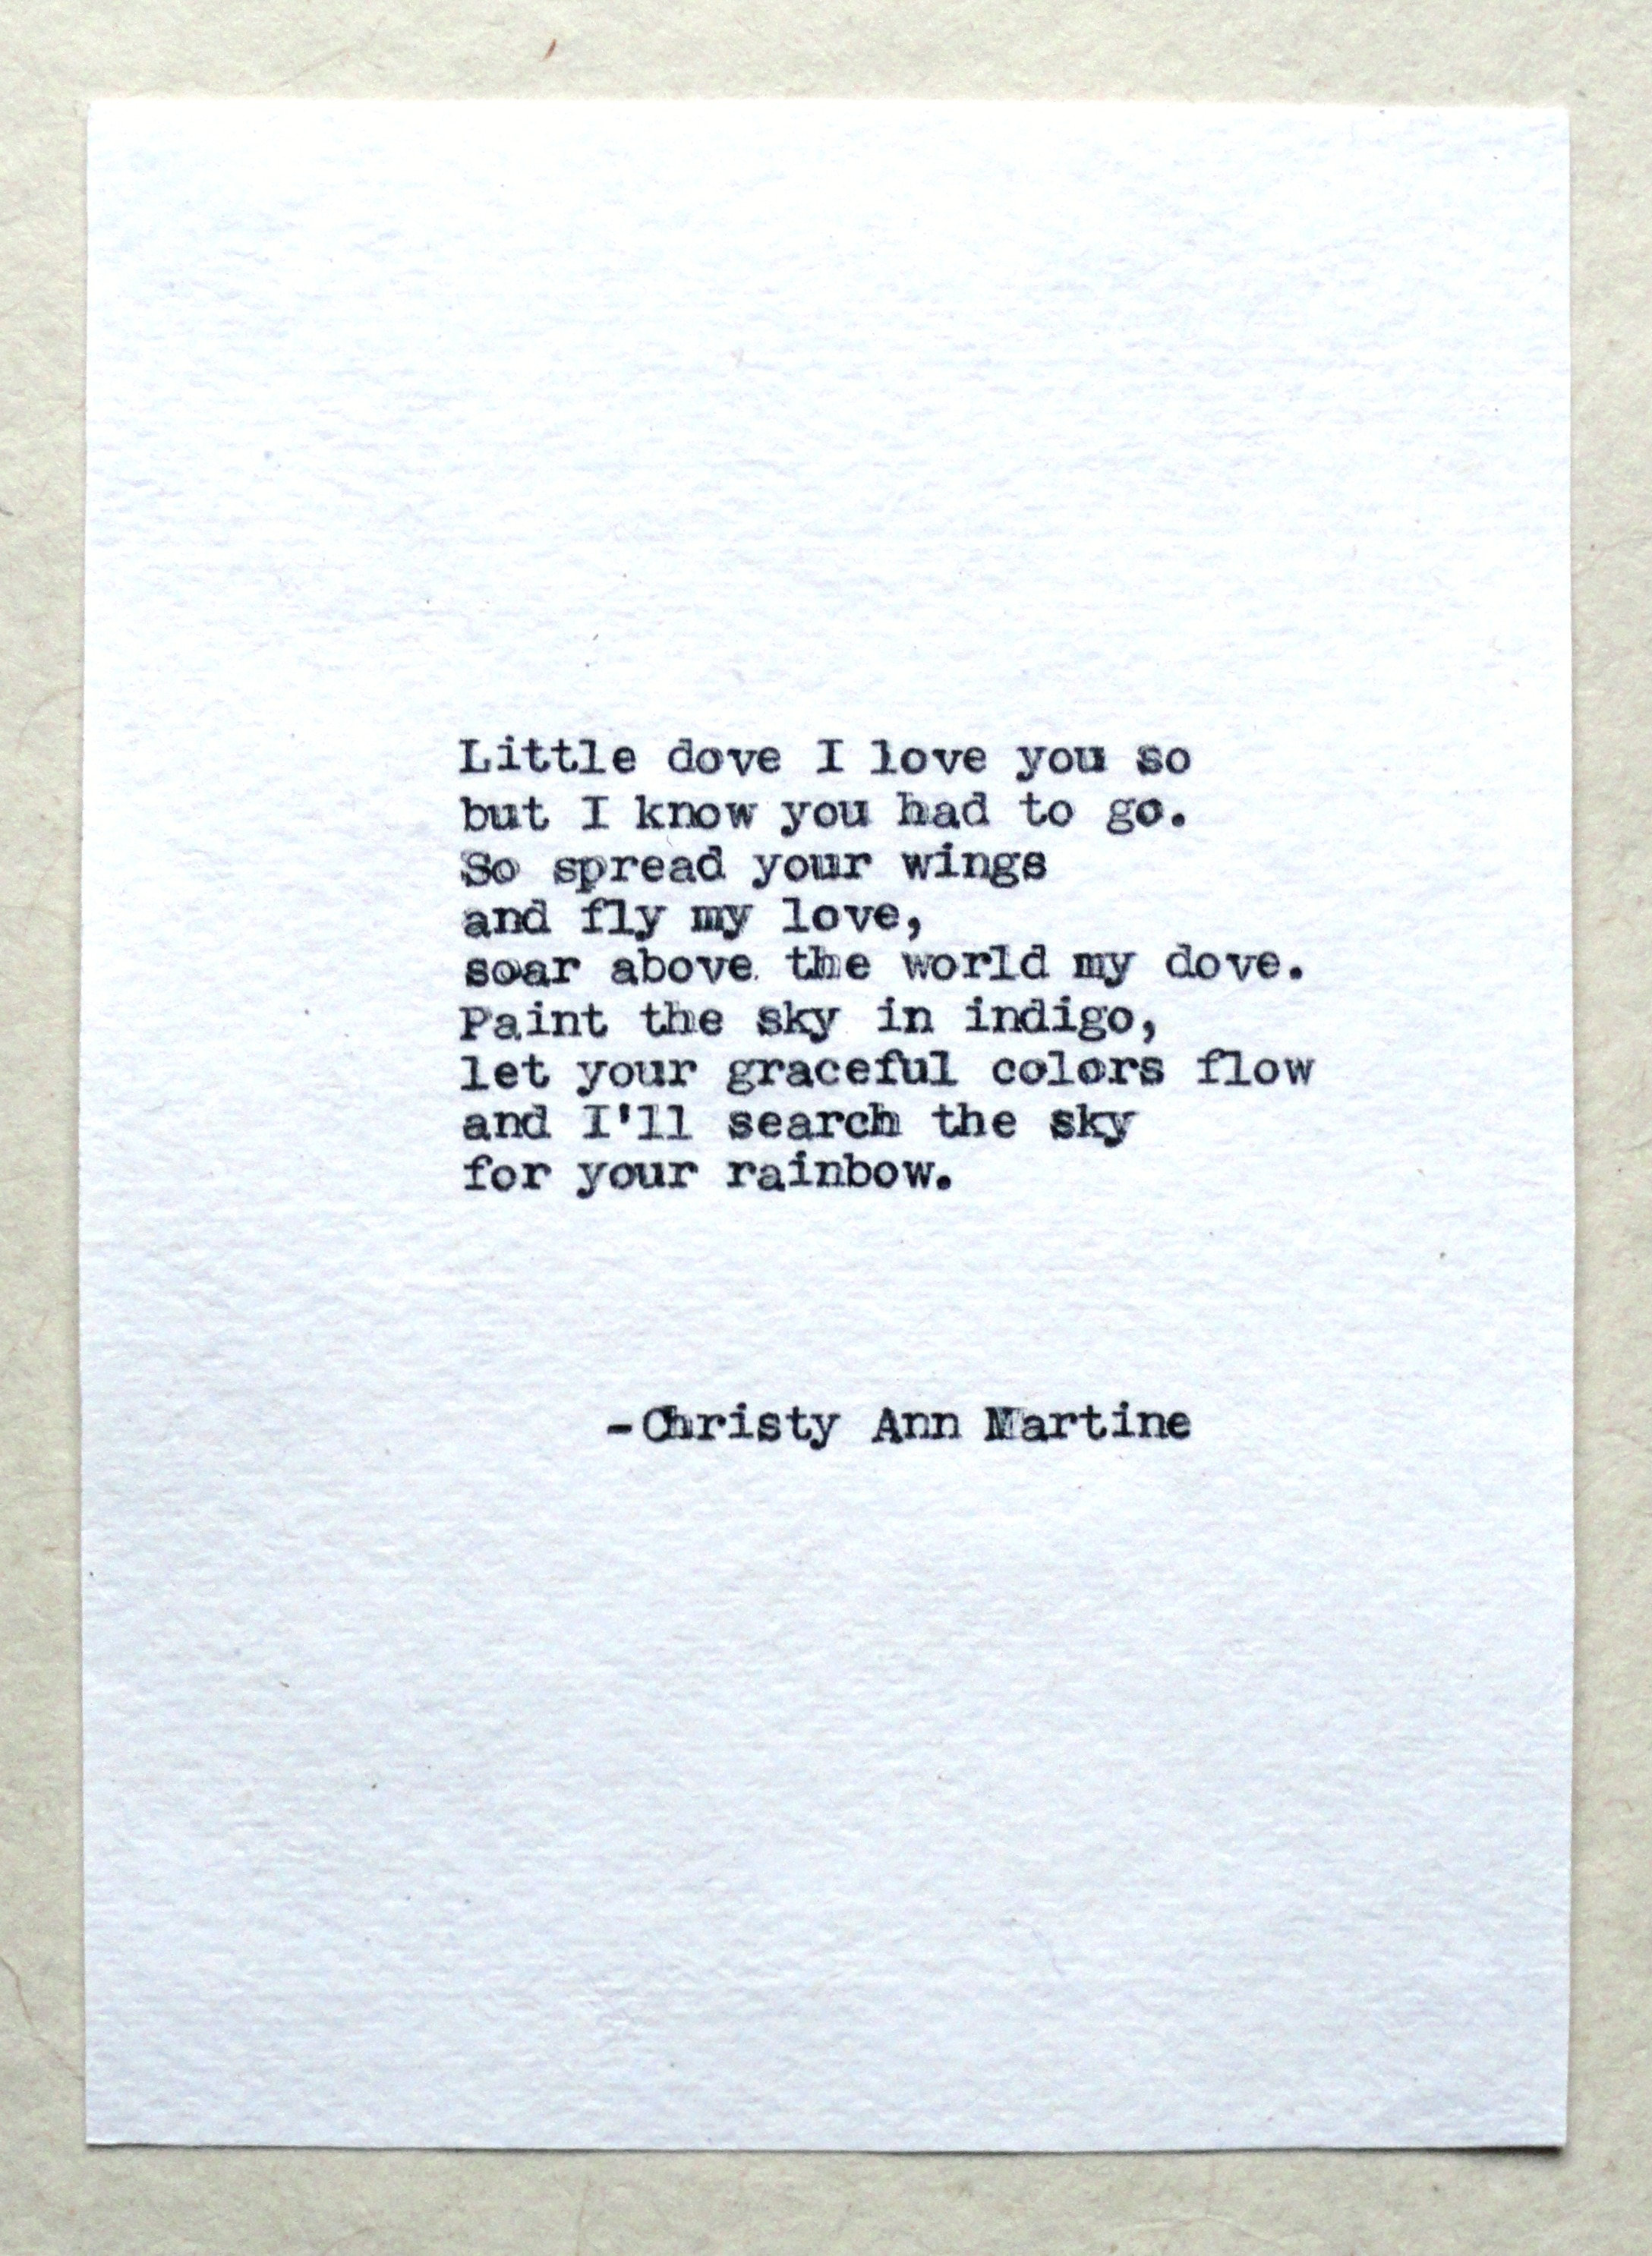 Little dove I love you so
but I know you had to go.
So spread your wings
and fly my love,
soar above the world my dove.
Paint the sky in indigo,
let your graceful colors flow
and I'll search the sky
for your rainbow.
-Christy Ann Martine